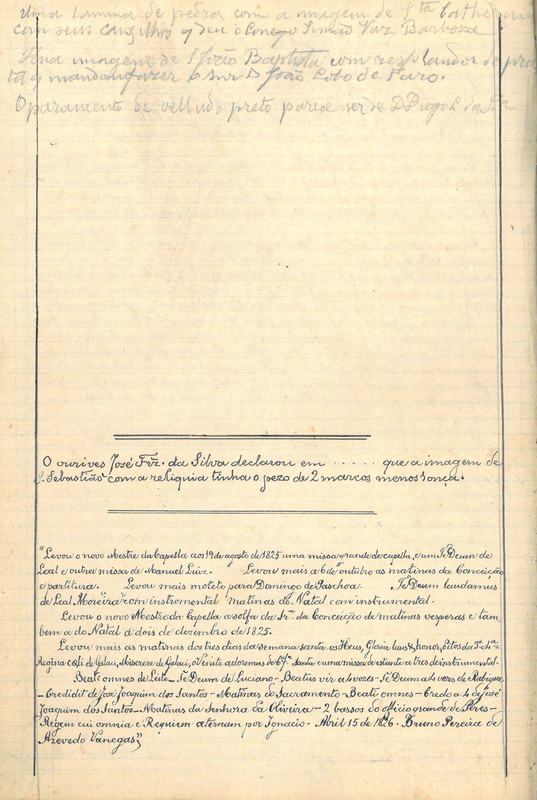 Uma lamina de pedra com a imagem de Sta Catherina
com seus caixilhos q deu o Conego Simão Vaz Barbosa
Hua imagem de S João Baptista com resplandor de pra
ta q mandou fazer o Snr D João Lobo de Faro.
O paramento de velludo preto parece ser de D Diogo L da Sa
O ourives José Frz. da Silva declarou em ..... que a imagem de
S. Sebastião com a reliquia tinha o pezo de 2 marcos menos 1 onça.
"Levou o novo Mestre da Capella aos 19 de agosto de 1825 uma missa grande de capella, e um TeDeum de
Leal e outra missa de Manuel Luiz. Levou mais a 6 de outubro as matinas da Conceição
e partitura. Levou mais moteto para Domingo de Paschoa. TeDeum laudamus
de Leal Moreira com instromental matinas do Natal com instrumental.
Levou o novo Mestre da Capella a solfa da Ir. da Conceição de matinas vesperas e tam
bem a do Natal a dois de dezembro de 1825.
Levou mais as matinas dos tres dias da semana santa, os Heus, Gloria laus & honor, Pitos da
Regina Cœli de Galaci, Miserere de Galaci, o Venite adoremus de 6ª fª Santa e uma missa de estante a tres de instrumental.
Beati omnes de Leite _ TeDeum de Luciano - Beatus vir a 4 vozes - TeDeum a 4 vozes de
- Credidit de José Joaquim dos Santos - Matinas do Sacramento - Beati omnes - Credo a 4 de José
Joaquim dos Santos - Matinas da Senhora da Oliveira - 2 bassos do officio grande de Peres -
Regem cui omnia e Requiem æternam por Ignacio - Abril 15 de 1826. Bruno Pereira de
Azevedo Vanegas"